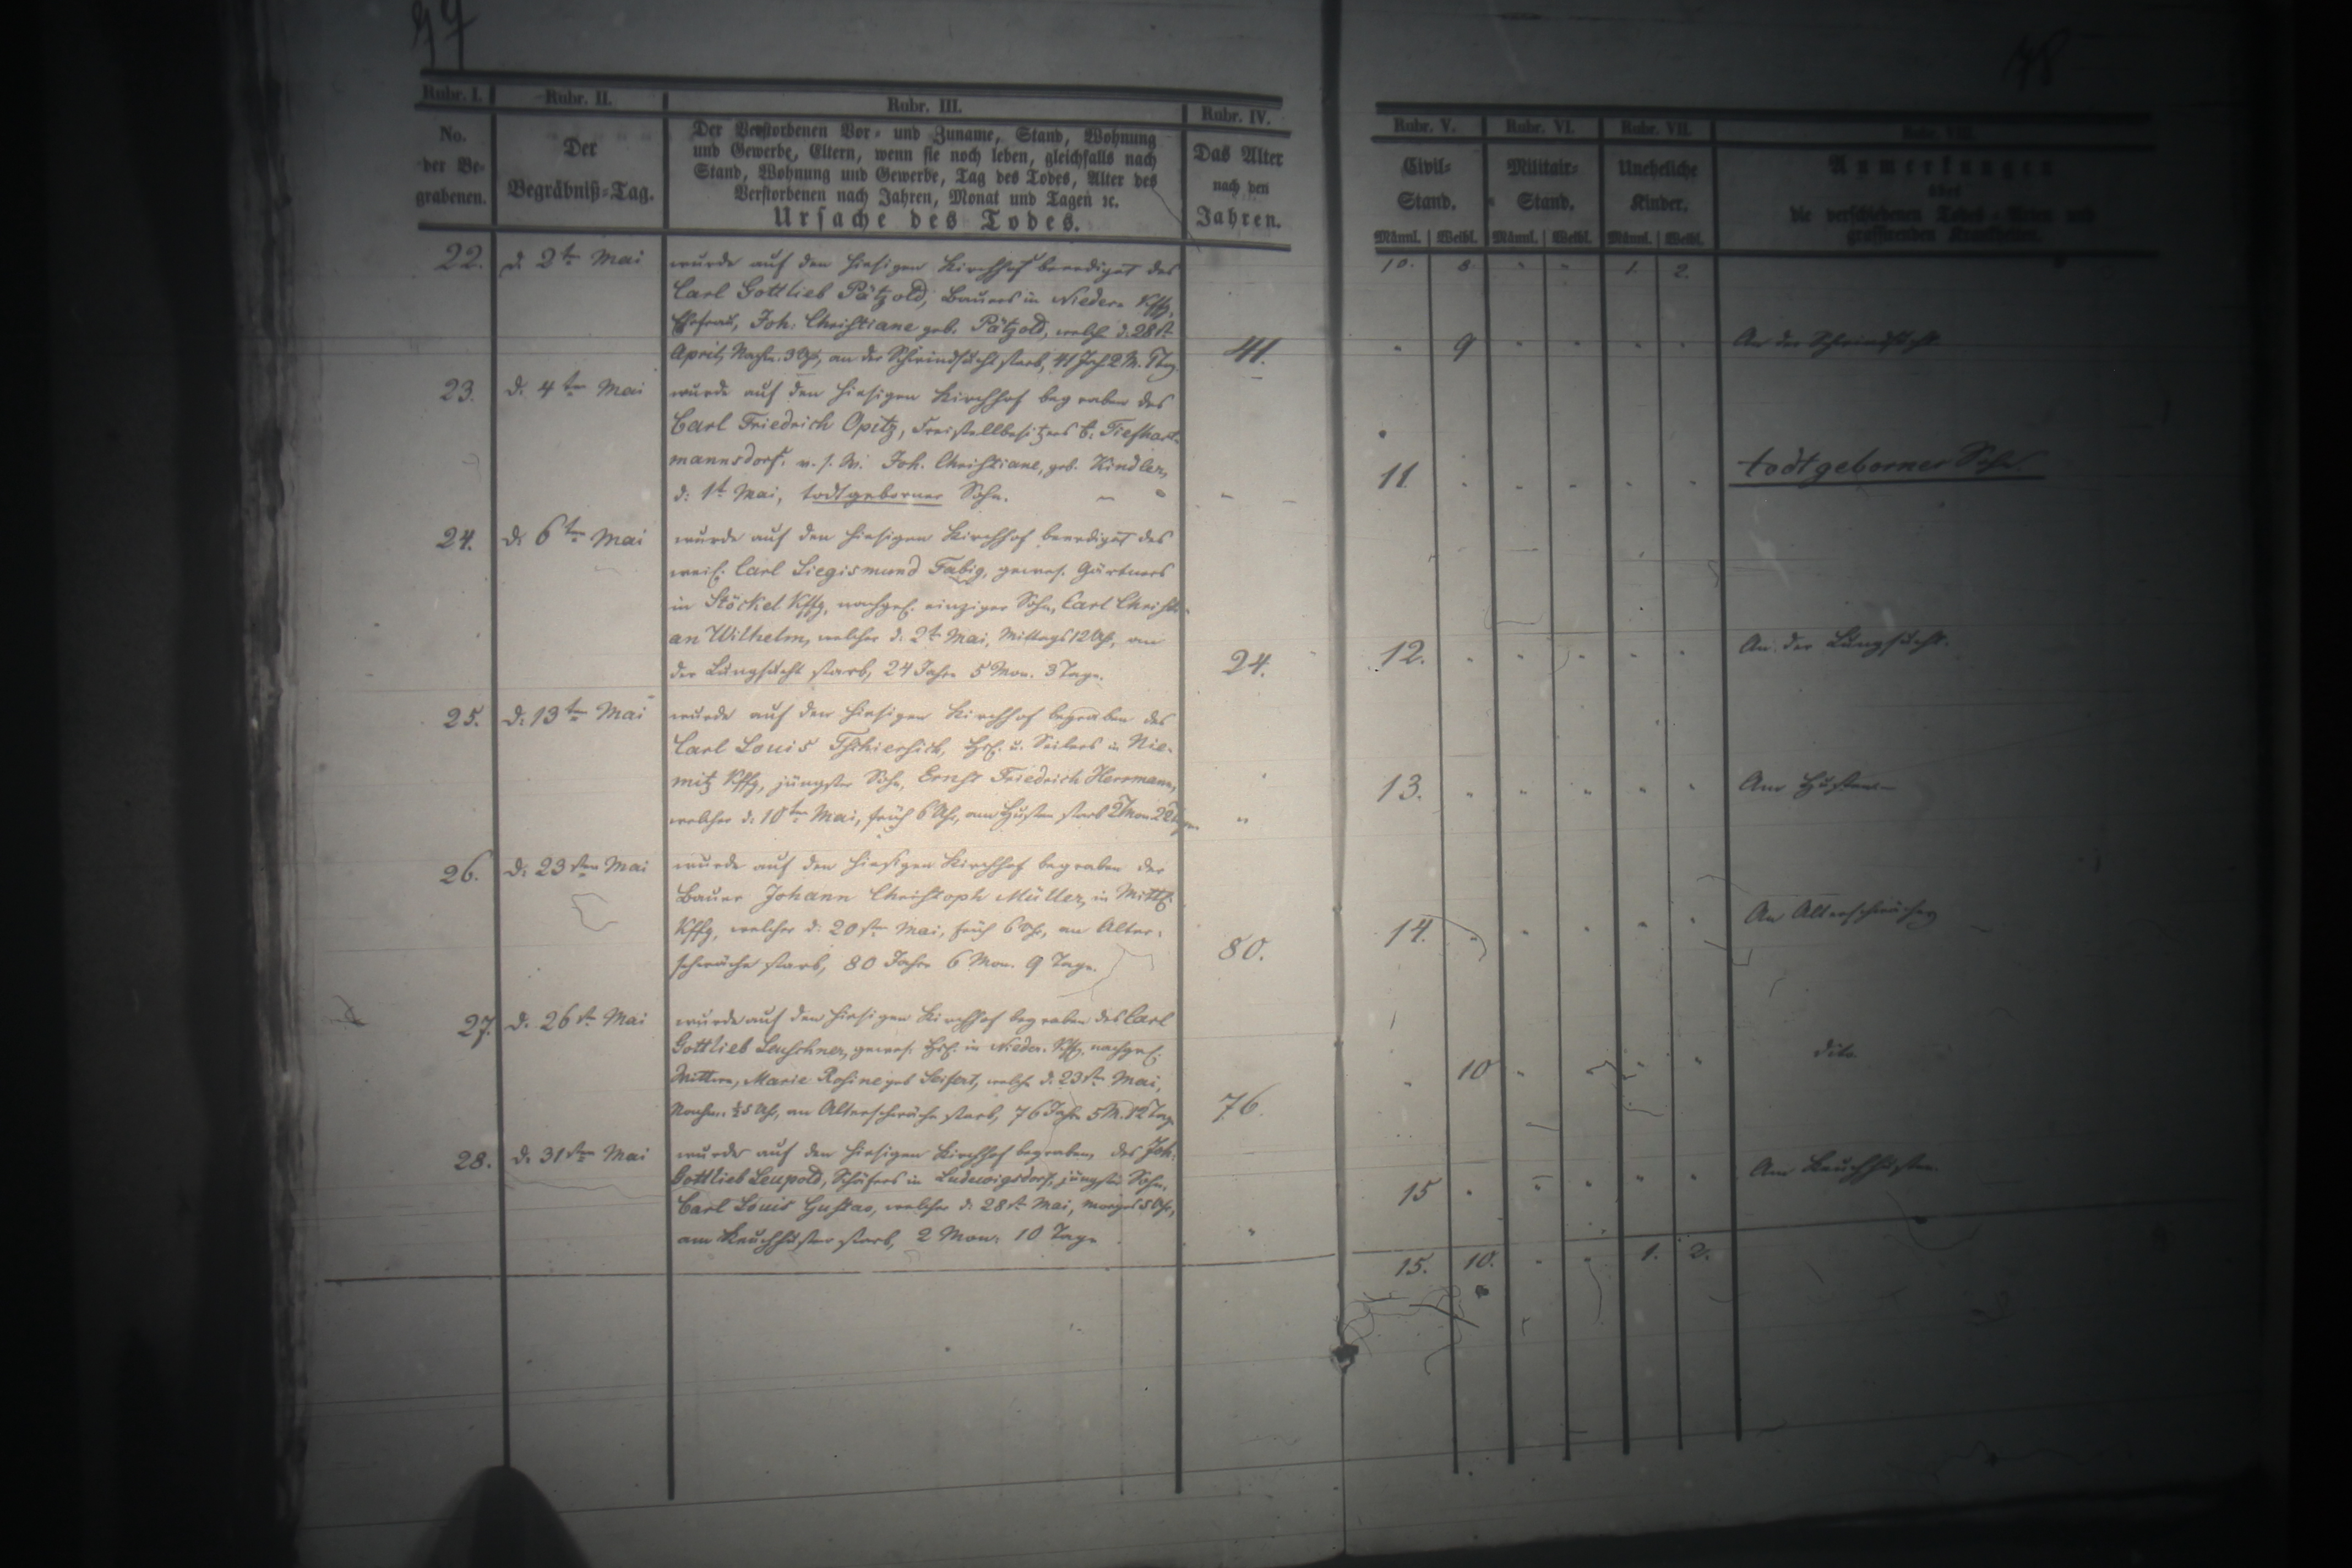 77
78
Rubr. I.
Rubr. II.
Rubr. III.
Rubr. IV.
Rubr. V.
Rubr. VI.
Rubr. VII.
Rubr. VIII.
No.
der Be-
grabenen.
Der
Begräbniß-Tag.
Der Verstorbenen Vor- und Zuname, Stand, Wohnung
und Gewerbe, Eltern, wenn sie noch leben, gleichfalls nach
Stand, Wohnung und Gewerbe, Tag des Todes, Alter des
Verstorbenen nach Jahren, Monat und Tagen ꝛc.
Ursache des Todes.
Das Alter
nach den
Jahren.
Civil-
Stand.
Militair-
Stand.
Uneheliche
Kinder.
Männl. Weibl. Männl. Weibl. Männl. Weibl.
Anmerkungen
über
die verschiedenen Todes-Arten und
grassirenden Krankheiten.
10. 8. " " 1. 2.
22. d. 2ten Mai wurde auf den hiesigen Kirchhof beerdiget des
Carl Gottlieb Pätzold, Bauers in Nieder Kffg,
Ehefrau, Joh. Christiane geb. Pätzold, welche d. 28st
April, Nachm. 3 Uhr, an der Schwindsucht starb, 41 Jah 2 M. 9 Tg. 41. " 9 " " " " An der Schwindsucht
23. d. 4ten Mai wurde auf den hiesigen Kirchhof begraben des
Carl Friedrich Opitz, Freistellbesitzers b. Tiefhart-
mannsdorf, u. s. W. Joh. Christiane, geb. Kindler,
d: 1t Mai, todtgeborner Sohn. 11. " " " " " todtgeborner Sohn.
24. d. 6ten Mai wurde auf den hiesigen Kirchhof beerdiget des
weil. Carl Siegismund Fabig, gewes. Gärtners
in Stöckel Kffg, nachgel. einziger Sohn, Carl Christi-
an Wilhelm, welcher d. 2t Mai, Mittags 12 Uhr, an
der Lungsucht starb, 24 Jahre 5 Mon. 3 Tage. 24. 12. " " " " " An der Lungsucht.
25. d. 13ten Mai wurde auf den hiesigen Kirchhof begraben des
Carl Louis Tschiersich, Hsl. u. Seilers in Nie-
mitz Kffg, jüngster Sohn, Ernst Friedrich Herrmann,
welcher d. 10ten Mai, früh 6 Uhr, am Husten starb " 13. " " " " " Am Husten.
26. d. 23sten Mai wurde auf den hiesigen Kirchhof begraben der
Bauer Johann Christoph Müller, in Mittl.
Kffg, welcher d. 20sten Mai, früh 6 Uhr, an Alter-
schwäche starb, 80 Jahre 6 Mon. 9 Tage. 80. 14. " " " " " An Alterschwäche
27. d. 26st Mai wurde auf den hiesigen Kirchhof begraben des Carl
Gottlieb Leuschner, gewes. Hsl. in Nieder. Kffg. nachgel.
Wittwe, Marie Rosine geb Seifert, welche d. 23st Mai,
Nachm. ½5 Uhr, an Alterschwäche starb, 76 Jahr 5 M. 12 Tag 76. " 10 " " " " dito
28. d. 31sten Mai wurde auf den hiesigen Kirchhof begraben, des Joh.
Gottlieb Leupold, Schäfers in Ludewigsdorf, jüngster Sohn,
Carl Louis Gustav, welcher d. 28st Mai, morgens 5 Uhr,
am Keuchhusten starb, 2 Mon. 10 Tage " 15 " " " " " Am Keuchhusten.
15. 10. " " 1. 2.